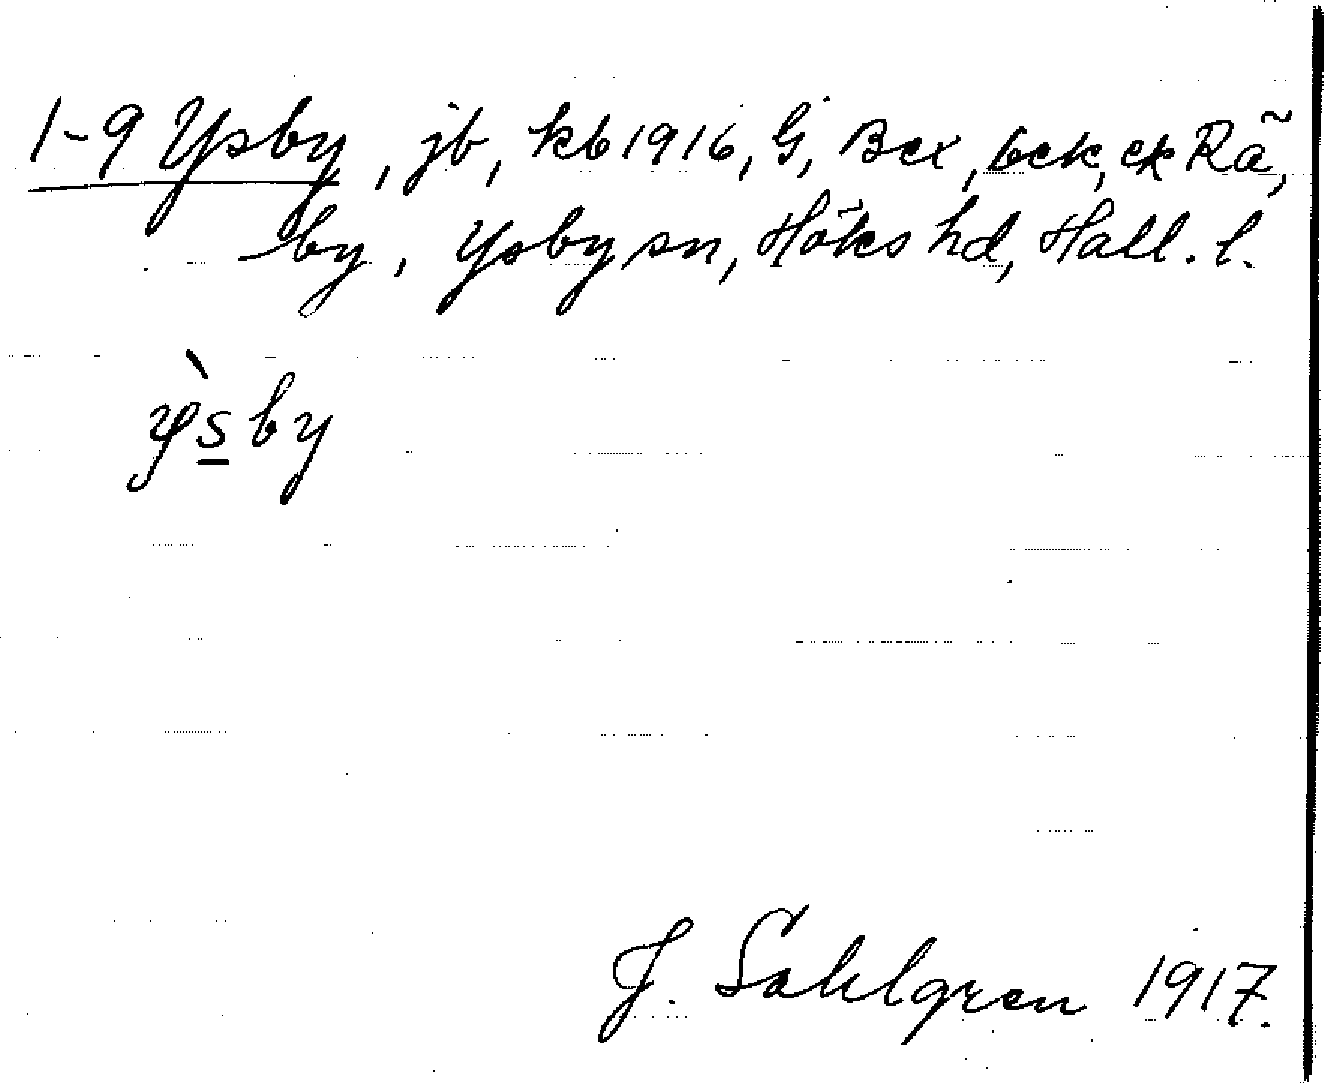 1-9 Ysby, jb, kb 1916, G, Bex, bek, ek Rã,
by, Ysby sn, Höks hd, Hall. l.
ỳsby
J. Sahlgren 1917.